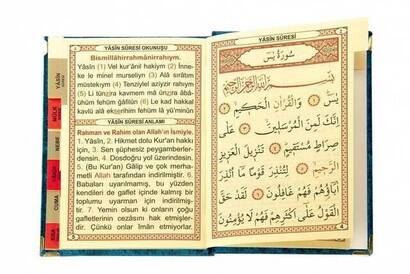 YÂSİN SÛRESİ OKUNUŞU
Bismillâhirrahmânirrahıym.
Yâsîn (1) Vel kur'ânil hakiym (2) İnne-
ke le minel murseliyn (3) Alâ sırâtım
müstekıym (4) Tenziylel aziyzir rahıym
(5) Li tünzira kavmem mâ ünzira âbâ-
ühüm fehüm ğâfilûn (6) Le kad hakkal
kavlü alâ ekserihim fehüm lâ yü'minûn
YÂSİN SÛRESİ ANLAMI
Rahman ve Rahim olan Allah'ın İsmiyle.
1. Yâsîn, 2. Hikmet dolu Kur'an hakkı
için, 3. Sen şüphesiz peygamberler-
densin. 4. Dosdoğru yol üzerindesin.
5. (Bu Kur'an) Gâlip ve çok merha-
metli Allah tarafından indirilmiştir. 6.
Babaları uyarılmamış, bu yüzden
kendileri de gaflet içinde kalmış bir
toplumu uyarman için indirilmiştir.
7. Yemin olsun ki onların çoğu
gafletlerinin cezasını hak etmişler-
dir. Çünkü onlar îman etmiyorlar.
YÂSİN
MÜLK
NEBE
CUMA
سُورَةُ يٰسٓ
بِسْمِ اللّٰهِ الرَّحْمٰنِ الرَّحِيمِ
يٰسٓ ﴿١﴾ وَالْقُرْاٰنِ الْحَكِيمِ ﴿٢﴾
اِنَّكَ لَمِنَ الْمُرْسَلِينَ ﴿٣﴾ عَلٰى
صِرَاطٍ مُسْتَقِيمٍ ﴿٤﴾ تَنْزِيلَ الْعَزِيزِ
الرَّحِيمِ ﴿٥﴾ لِتُنْذِرَ قَوْمًا مَٓا اُنْذِرَ
اٰبَٓاؤُهُمْ فَهُمْ غَافِلُونَ ﴿٦﴾ لَقَدْ حَقَّ
الْقَوْلُ عَلٰٓى اَكْثَرِهِمْ فَهُمْ لَا يُؤْمِنُونَ
4